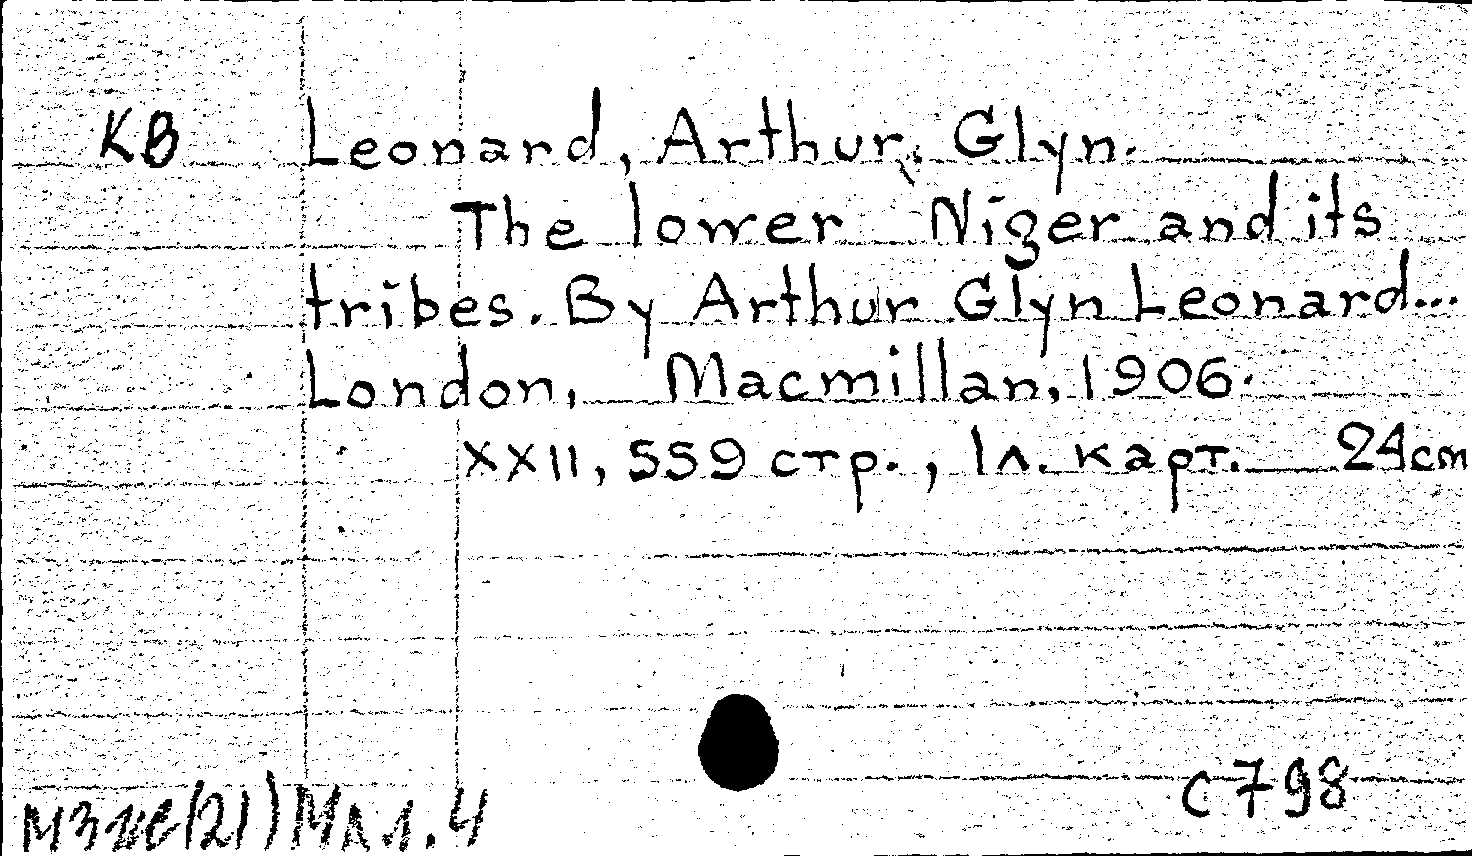 КВ Leonard, Arthur, Glyn.
The lower Niger and its
tribes. By Arthur Glyn Leonard...
London, Macmillan, 1906.
XXII, 559 стр., 1 л. карт. 24cm
с 798